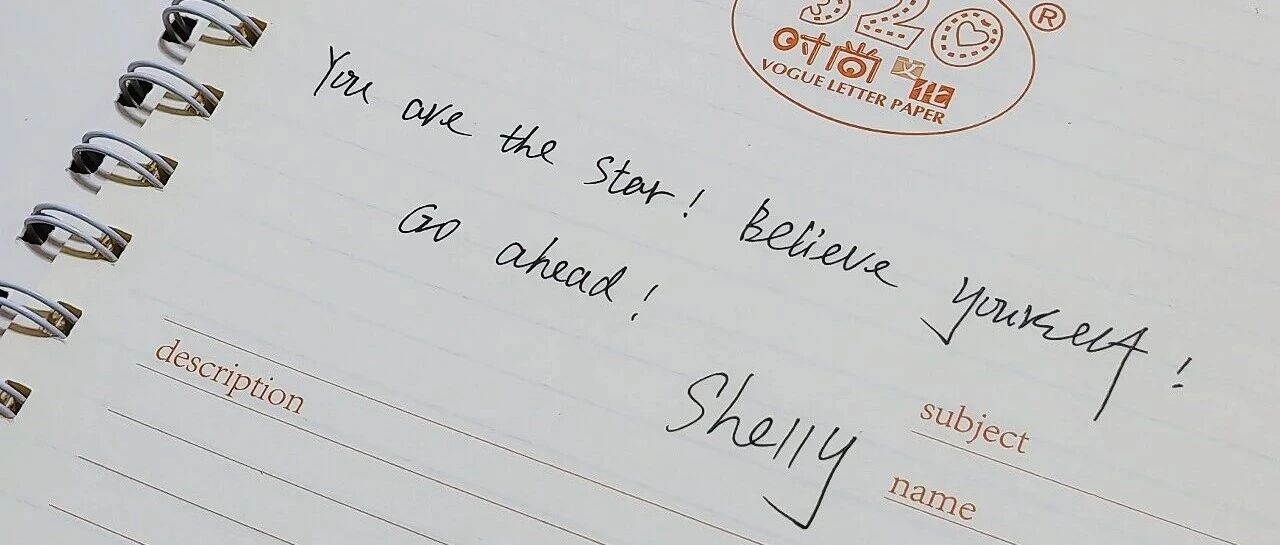 520
®
时尚文化
VOGUE LETTER PAPER
You are the star! Believe yourself!
Go ahead!
Shelly
description
subject
name